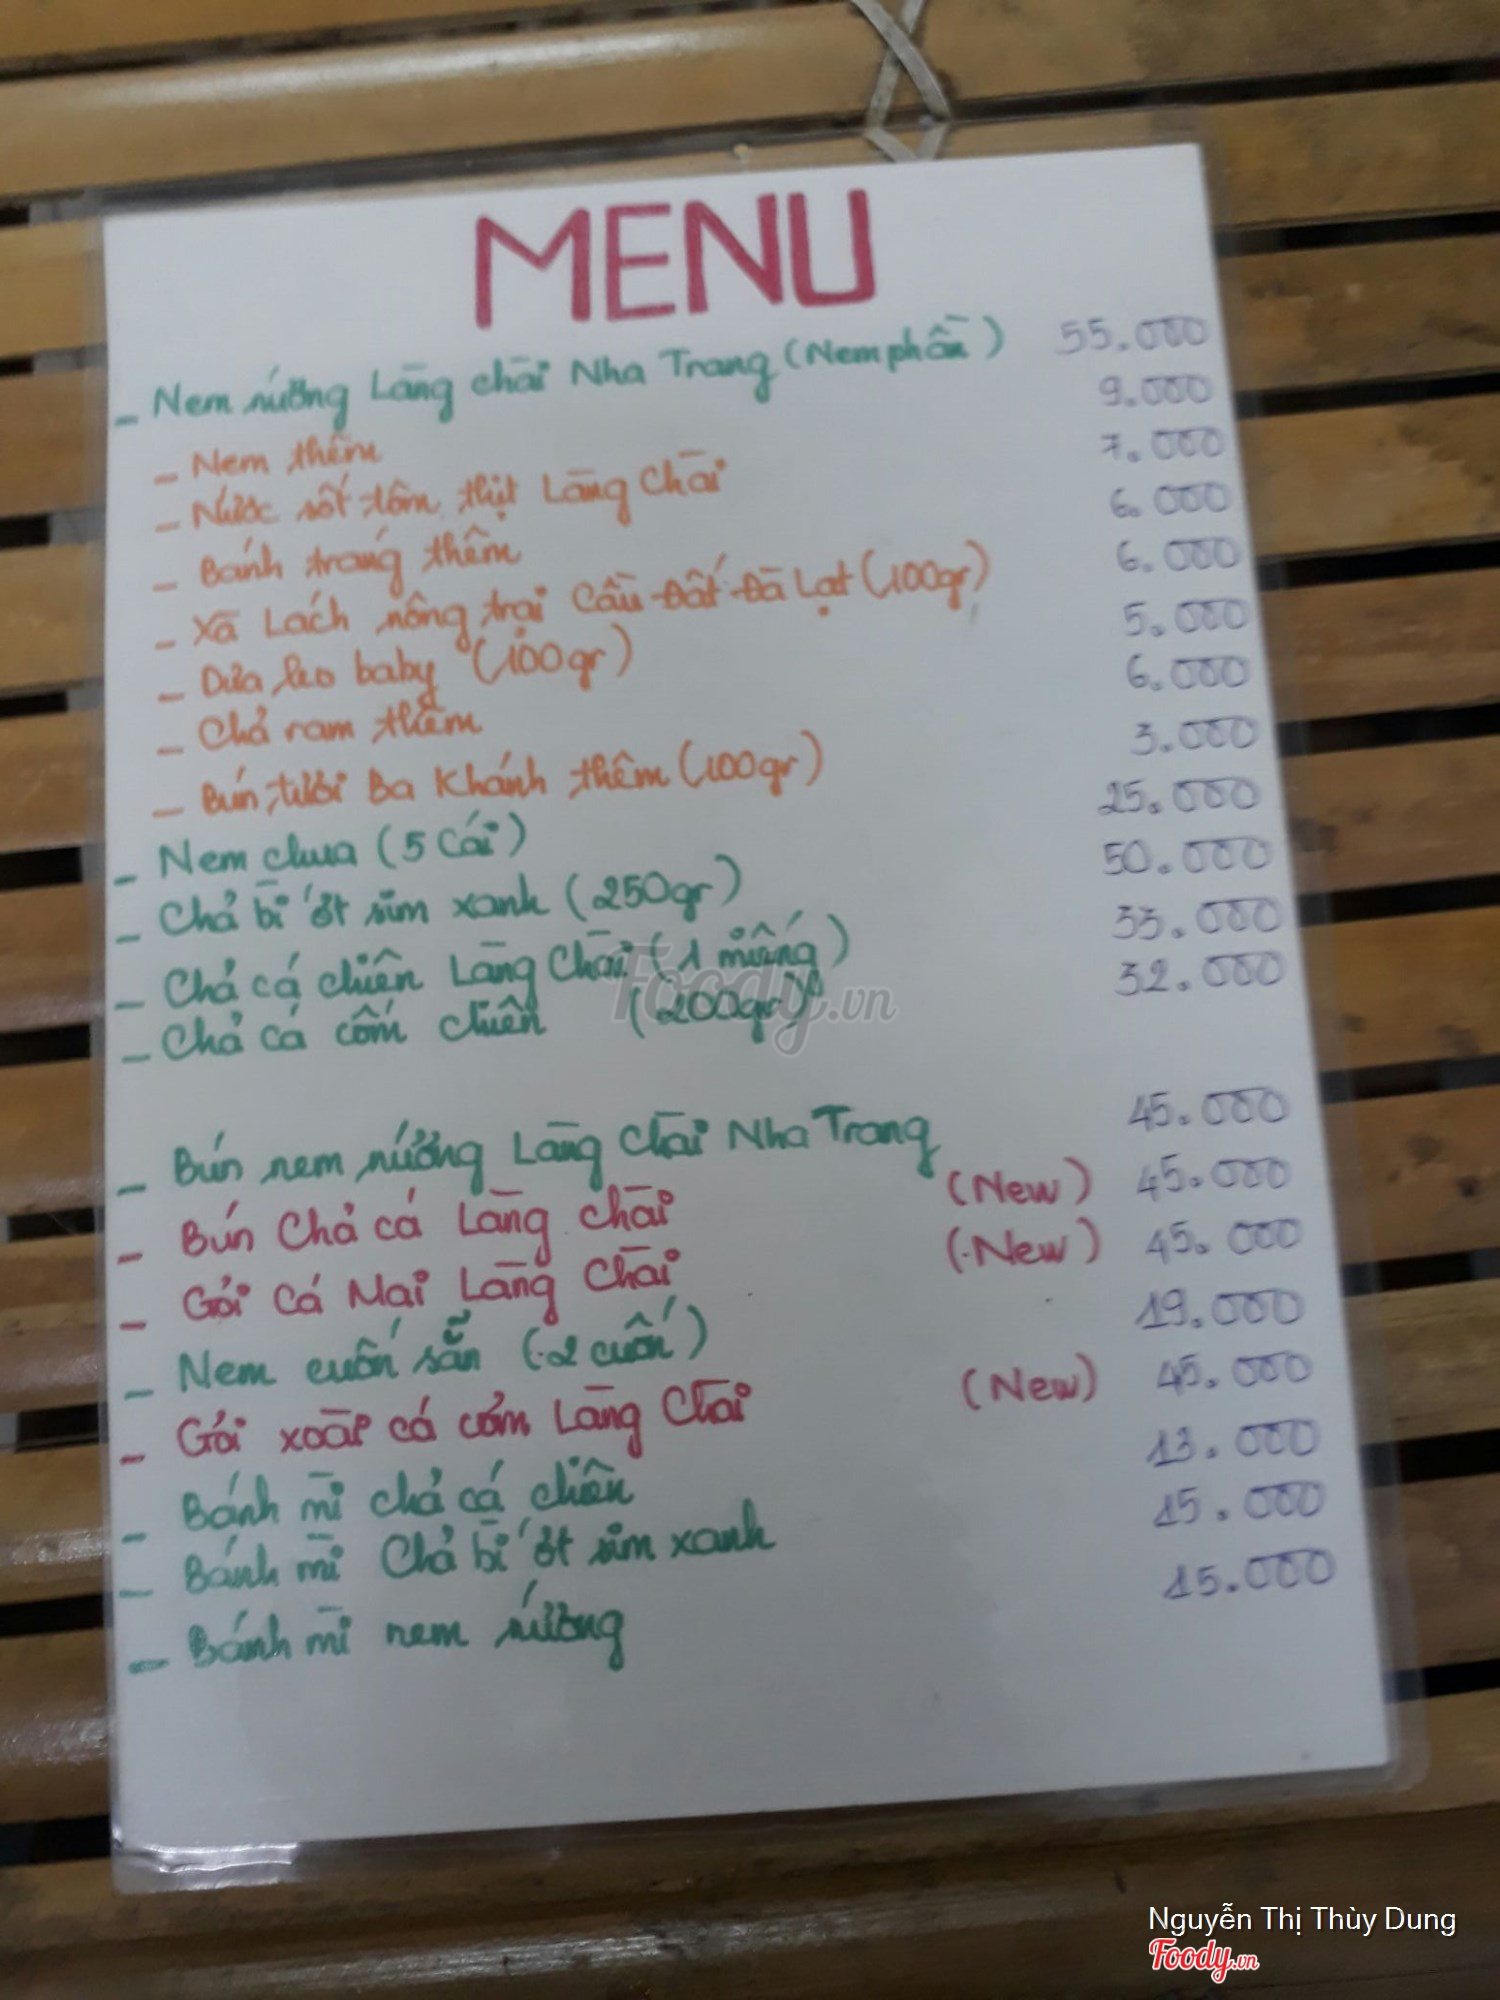 MENU
- Nem nướng Làng chài Nha Trang (Nem phần) 55.000
- Nem thêm 9.000
- Nước sốt tôm, thịt Làng Chài 7.000
- Bánh tráng thêm 6.000
- Xà Lách nông trại Cầu Đất Đà Lạt (100gr) 6.000
- Dưa leo baby (100gr) 5.000
- Chả ram thêm 6.000
- Bún tươi Ba Khánh thêm (100gr) 3.000
- Nem chua (5 cái) 25.000
- Chả bì ớt xiêm xanh (250gr) 50.000
- Chả cá chiên Làng Chài (1 miếng) 33.000
- Chả cá cốm chiên (200gr) 32.000
- Bún nem nướng Làng Chài Nha Trang 45.000
- Bún Chả cá Làng chài (New) 45.000
- Gỏi Cá Mai Làng Chài (New) 45.000
- Nem cuốn sẵn (2 cuốn) 19.000
- Gỏi xoài cá cơm Làng Chài (New) 45.000
- Bánh mì chả cá chiên 13.000
- Bánh mì Chả bì ớt xiêm xanh 15.000
- Bánh mì nem nướng 15.000
Foody.vn
Nguyễn Thị Thùy Dung
Foody.vn